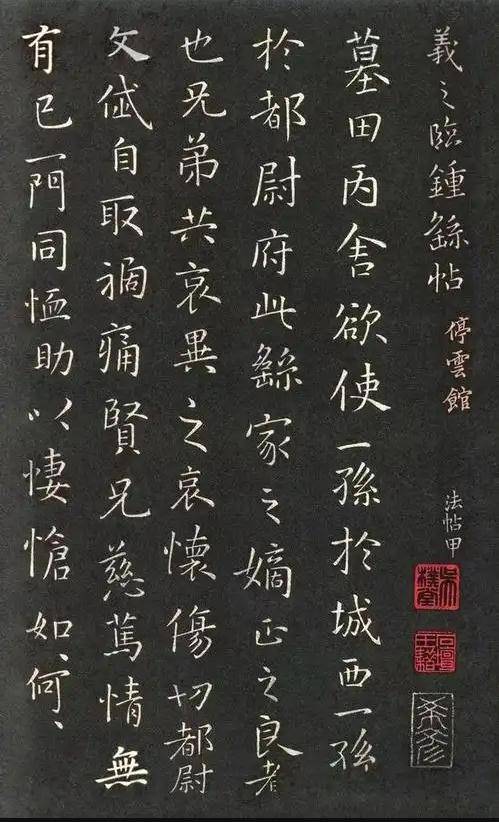 義之臨鍾繇帖
停雲館
法帖甲
墓田丙舍欲使一孫於城西一孫
於都尉府此繇家之嫡正之良者
也兄弟共哀異之哀懷傷切都尉
文岱自取禍痛賢兄慈篤情無
有已一門同恤助以悽愴如何、